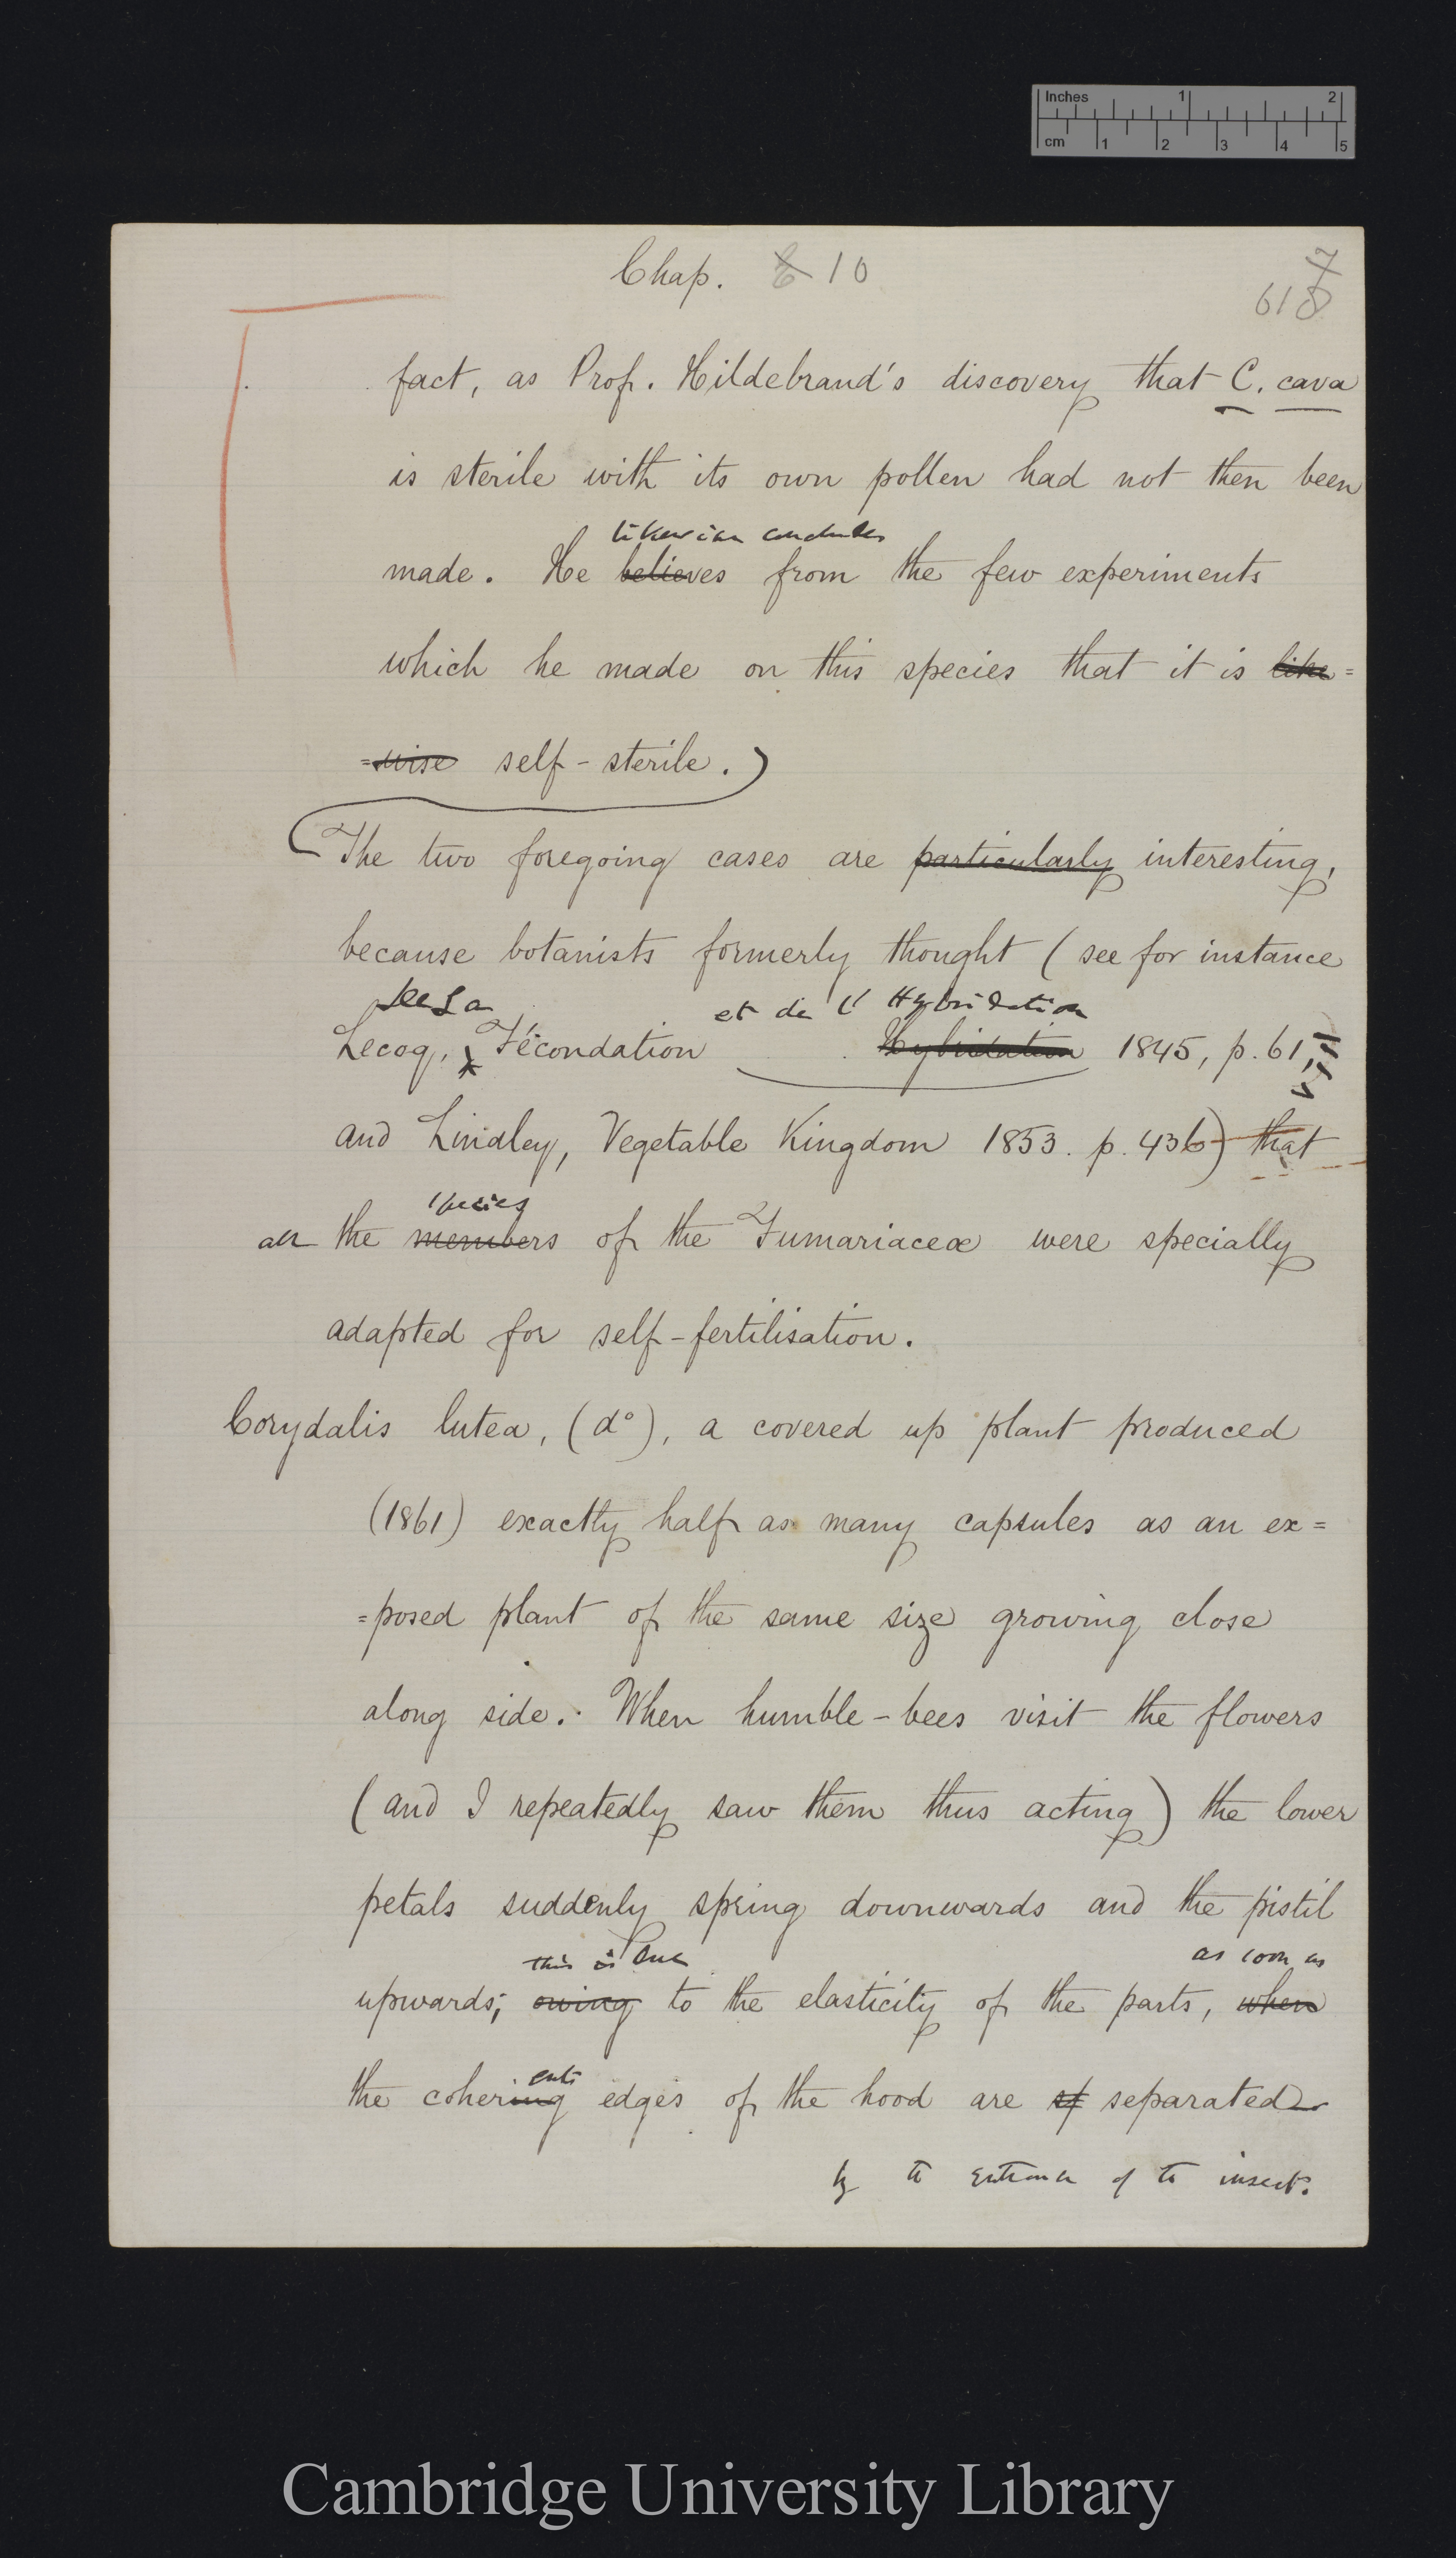 Inches 1 2
cm 1 2 3 4 5
Chap. 10
7
618
fact, as Prof. Hildebrand's discovery that C. cava
is sterile with its own pollen had not then been
likewise concludes
made. He believes from the few experiments
which he made on this species that it is like=
=wise self-sterile.)
The two foregoing cases are particularly interesting,
because botanists formerly thought (see for instance
De La et de l'Hybridation
Lecoq, Fécondation Hybridation 1845, p. 61,
and Lindley, Vegetable Kingdom 1853. p. 436) that
species
all the members of the Fumariaceæ were specially
adapted for self-fertilisation.
Corydalis lutea, (d°), a covered up plant produced
(1861) exactly half as many capsules as an ex=
=posed plant of the same size growing close
along side. When humble-bees visit the flowers
(and I repeatedly saw them thus acting) the lower
petals suddenly spring downwards and the pistil
this is due as soon as
upwards; owing to the elasticity of the parts, when
ent
the cohering edges of the hood are separated
by the entrance of the insect.
Cambridge University Library